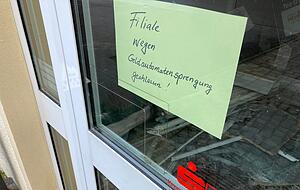 Filiale
wegen
Geldautomatensprengung
geschlossen